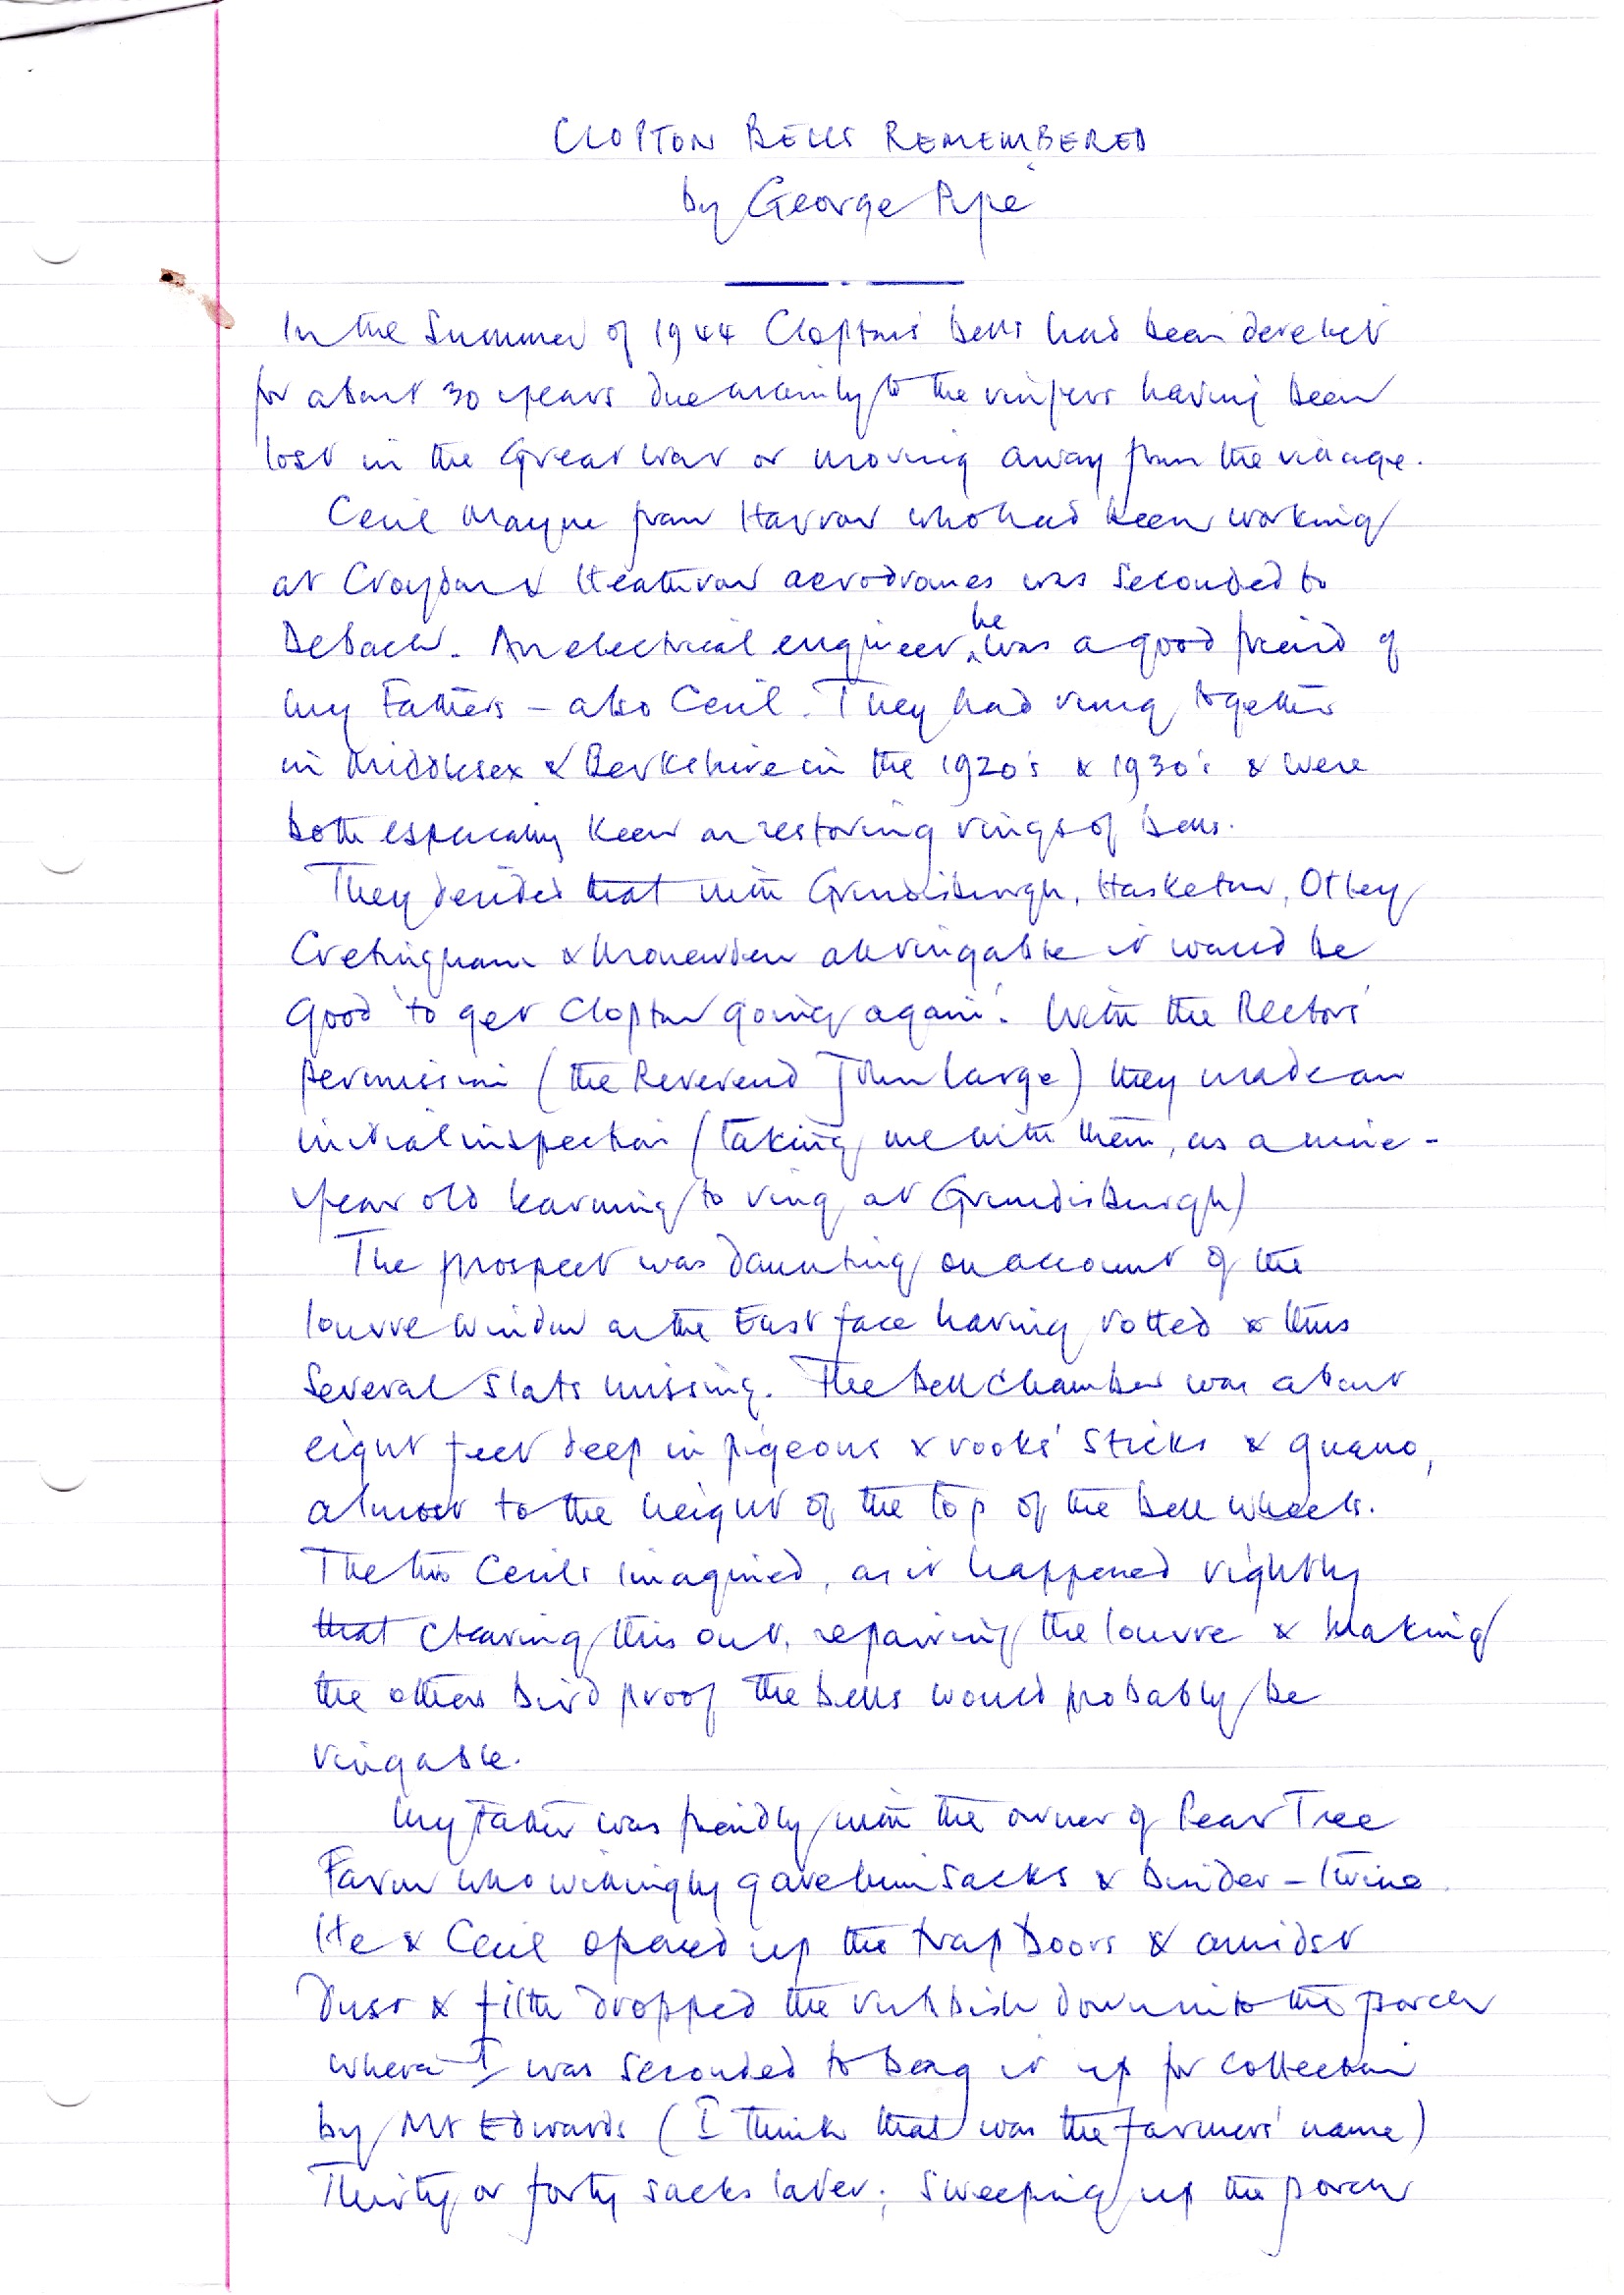 CLOPTON BELLS REMEMBERED
by George Pipe
In the Summer of 1944 Clopton's bells had been derelict
for about 30 years due mainly to the ringers having been
lost in the Great War or moving away from the village.
Cecil Mayne from Harrow who had been working
at Croydon & Heathrow aerodromes was seconded to
Debach. An electrical engineer, he was a good friend of
my Father's - also Cecil. They had rung together
in Middlesex & Berkshire in the 1920's & 1930's & were
both especially keen on restoring rings of bells.
They decided that with Grundisburgh, Hasketon, Otley
Cretingham & Monewden all ringable it would be
good 'to get Clopton going again'. With the Rectors'
permission (the Reverend John Large) they made an
initial inspection (taking me with them, as a nine-
year old learning to ring at Grundisburgh)
The prospect was daunting on account of the
louvre window on the East face having rotted & thus
several slats missing. The bell chamber was about
eight feet deep in pigeons & rooks' sticks & guano,
almost to the height of the top of the bell wheels.
The two Cecils imagined, as it happened rightly
that clearing this out, repairing the louvre & making
the others bird proof the bells would probably be
ringable.
My Father was friendly with the owner of Pear Tree
Farm who willingly gave him sacks & binder-twine.
He & Cecil opened up the trap doors & amidst
dust & filth dropped the rubbish down into the porch
where I was seconded to bag it up for collection
by Mr Edwards (I think that was the farmers' name)
Thirty or forty sacks later, sweeping up the porch